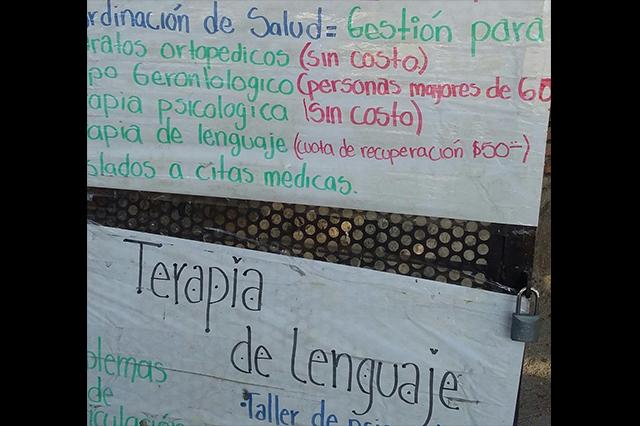 rdinación de Salud= Gestión para
ratos ortopedicos (sin costo)
po Gerontologico (personas mayores de 60
apia psicologica (sin costo)
apia de lenguaje (cuota de recuperación $50=)
slados a citas medicas.
Terapia
de lenguaje
blemas
de
iculación
·Taller de